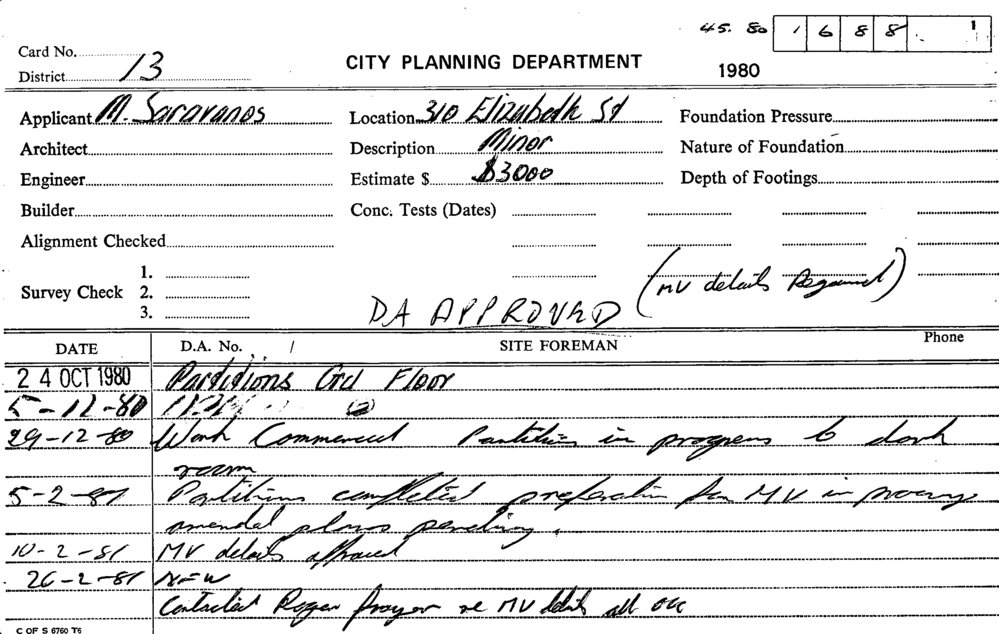 45. 80 1688 1
Card No.
District 13
CITY PLANNING DEPARTMENT
1980
Applicant M. Saravanos
Location 310 Elizabeth St
Foundation Pressure
Architect
Description Minor
Nature of Foundation
Engineer
Estimate $ $3000
Depth of Footings
Builder
Conc. Tests (Dates)
Alignment Checked
Survey Check 1.
2.
3.
(MV details Required)
DA APPROVED
DATE D.A. No. / SITE FOREMAN Phone
24 OCT 1980 Partitions Grd Floor
5-12-80
29-12-80 Work Commenced Partitions in progress to dark
room
5-2-81 Partitions completed preparation for MV in
amended plans pending.
10-2-81 MV details approved
26-2-81 NFW
Contacted Roger re MV details all OK
C OF S 6760 T6